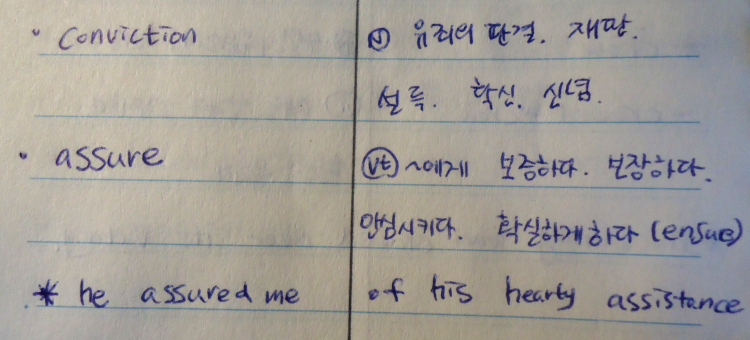 · conviction ⓝ 유죄의 판결. 재판.
설득. 확신. 신념.
· assure ⓥt ~에게 보증하다. 보장하다.
안심시키다. 확실하게하다 (ensure)
* he assured me of his hearty assistance